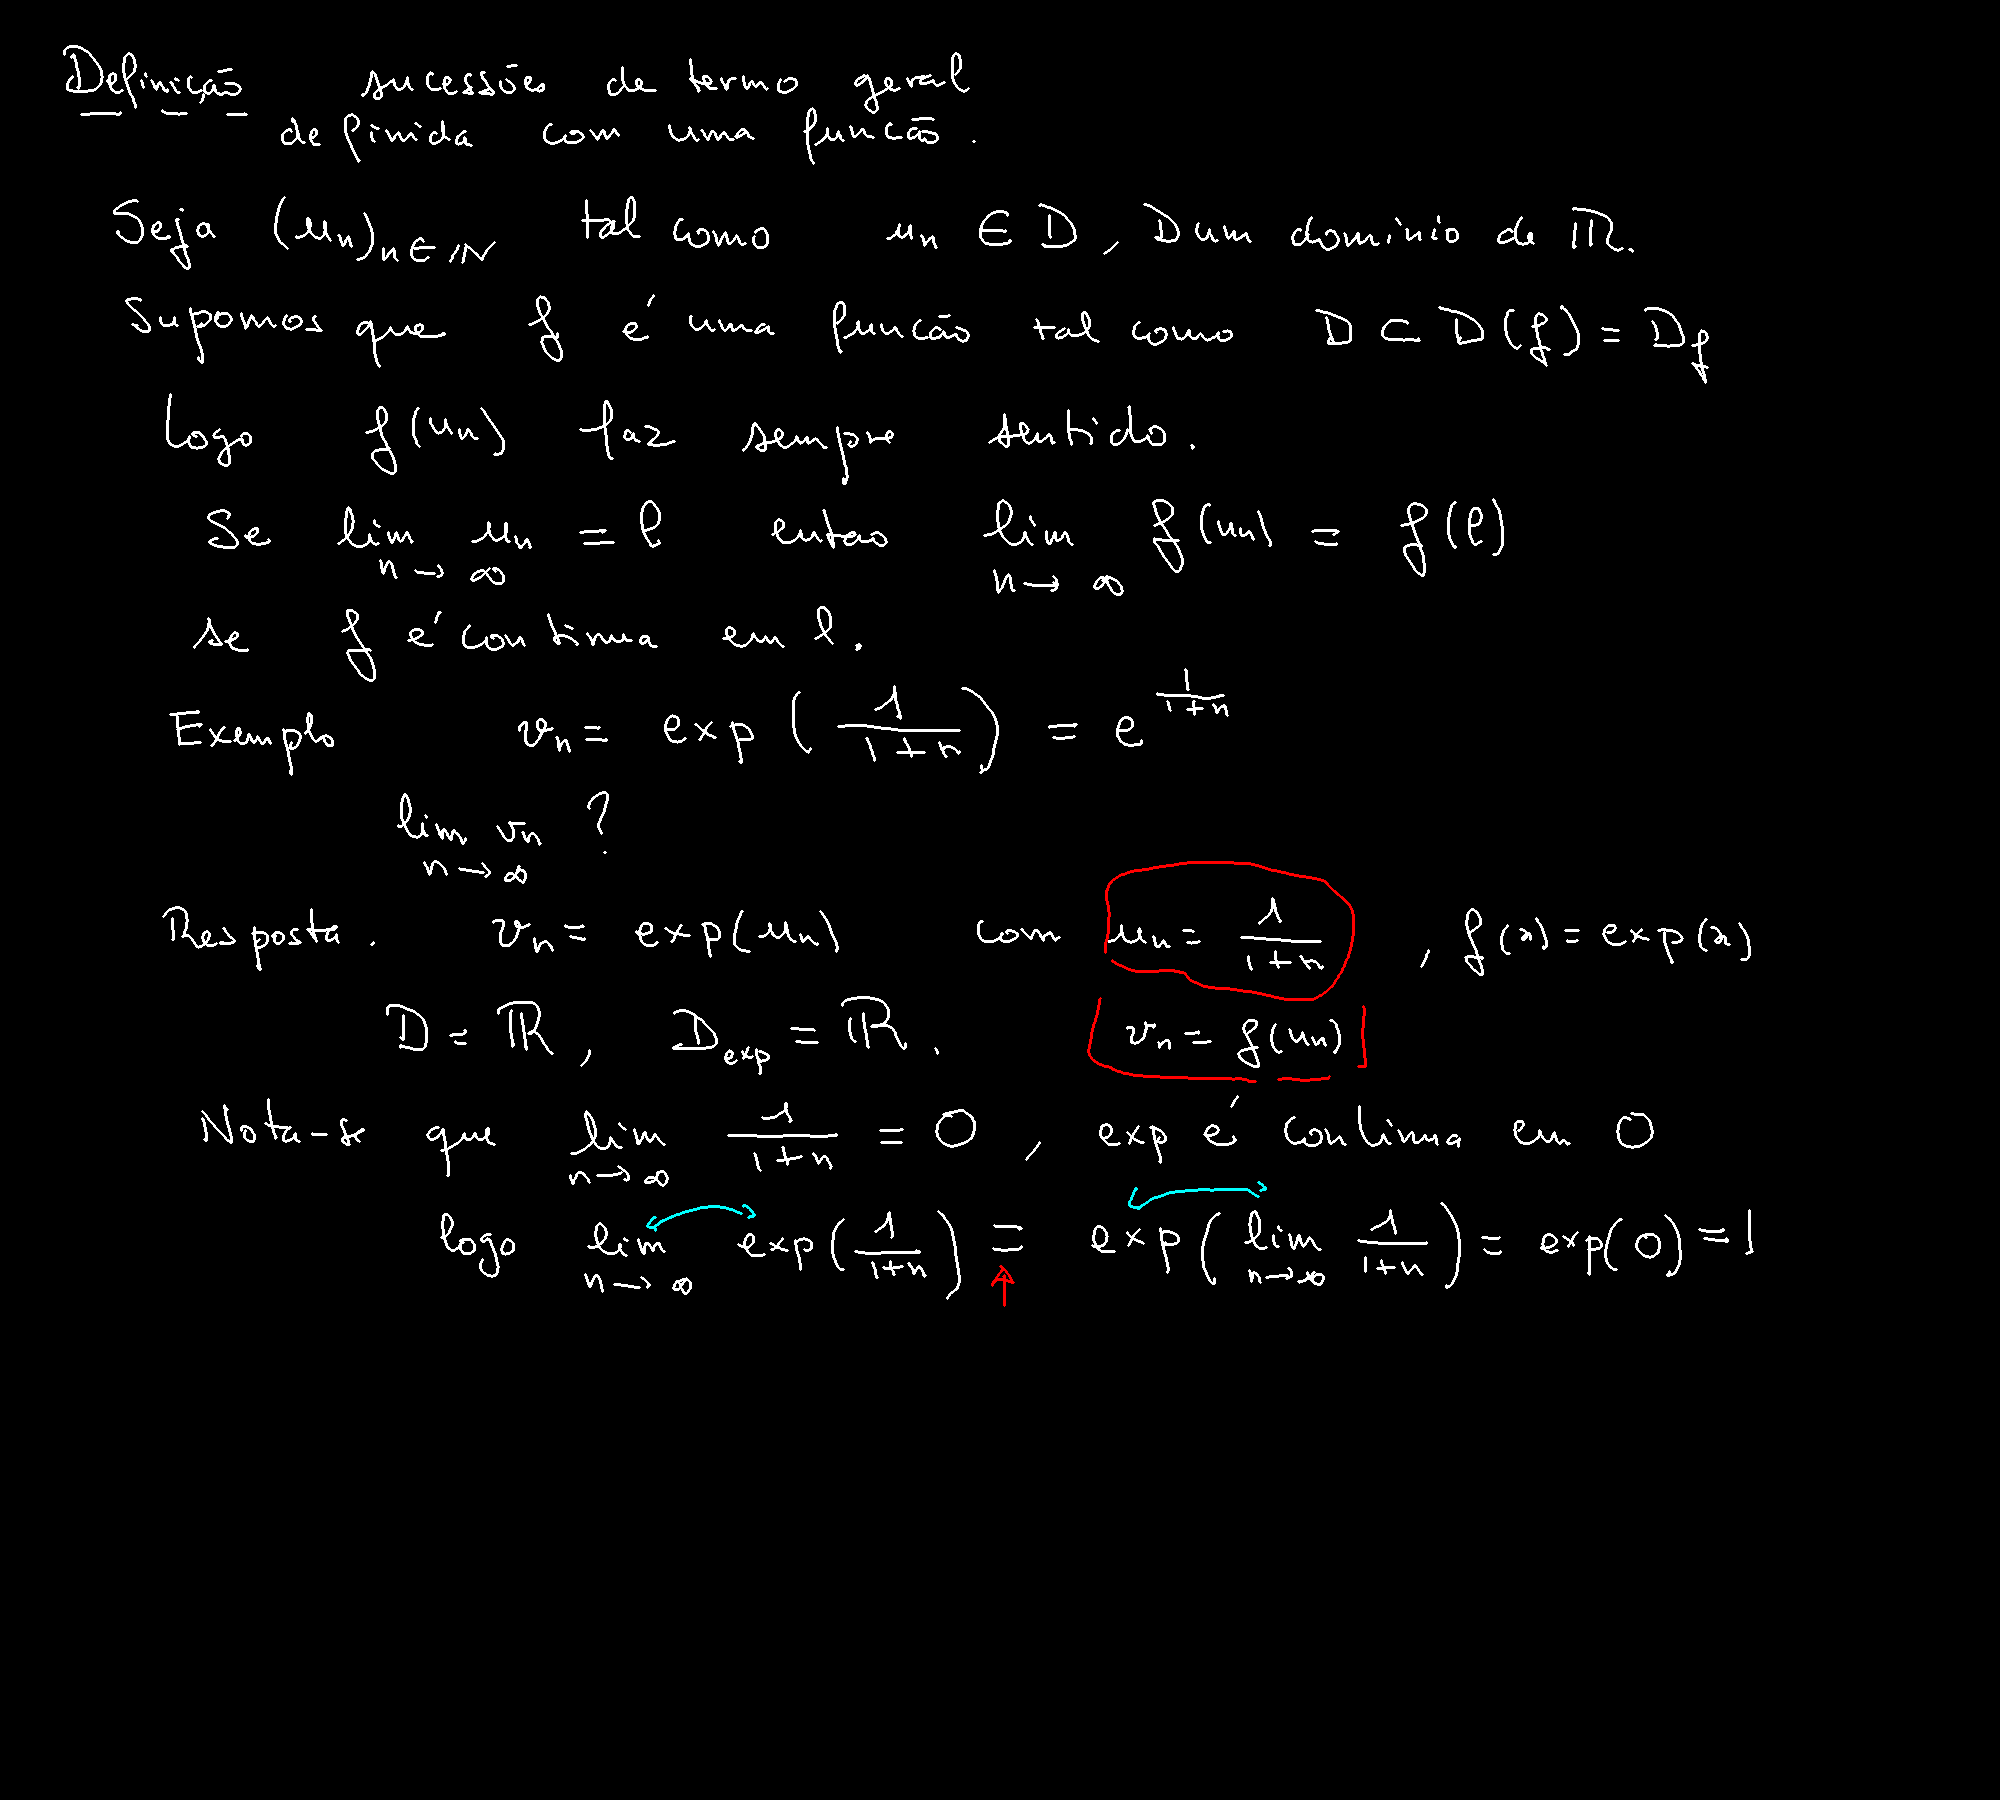 Definição sucessões de termo geral
definida com uma funcão.
Seja (un)n∈ℕ tal como un ∈ D, D um dominio de ℝ.
Supomos que f é uma funcão tal como D ⊂ D(f) = Df
Logo f(un) faz sempre sentido.
Se lim n→∞ un = l entao lim n→∞ f(un) = f(l)
se f é continua em l.
Exemplo vn = exp (1/(1+n)) = e^(1/(1+n))
lim n→∞ vn ?
Resposta. vn = exp(un) com un = 1/(1+n) , f(x) = exp(x)
D = ℝ, Dexp = ℝ. vn = f(un)
Nota-se que lim n→∞ 1/(1+n) = 0 , exp é continua em 0
logo lim n→∞ exp(1/(1+n)) = exp(lim n→∞ 1/(1+n)) = exp(0) = 1